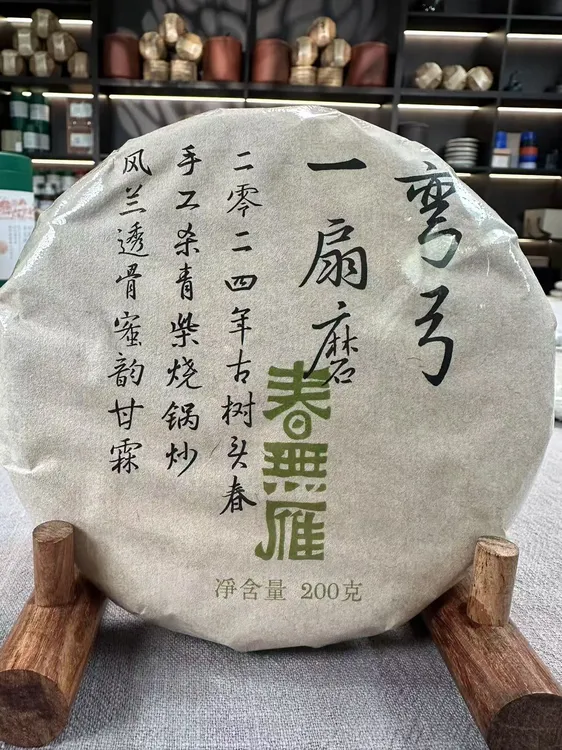 弯弓
一扇磨
二零二四年古树头春
手工杀青柴烧锅炒
风兰透骨蜜韵甘霖
春無雁
净含量 200克